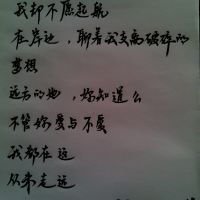 我却不愿起航
在岸边，聊着我支离破碎的
梦想
远方的她，你知道么
不管你爱与不爱
我都在这
从未走远